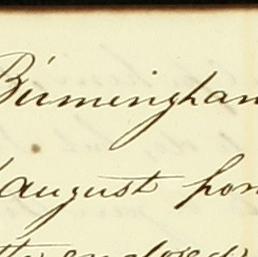 Birmingham
august for
enclosed